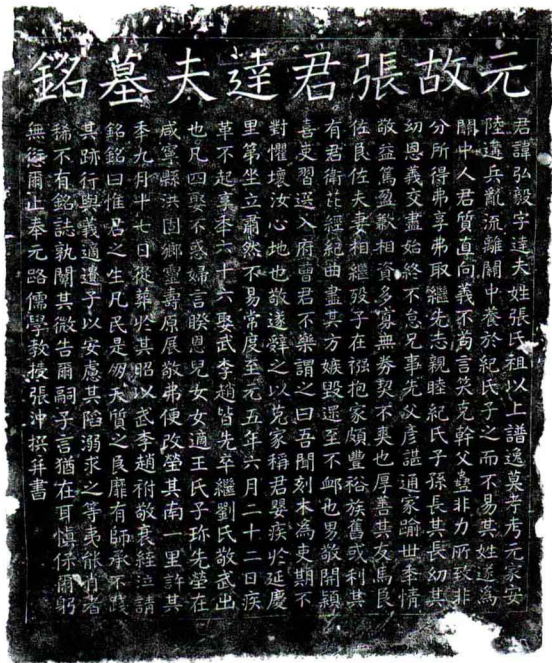 元故張君達夫墓銘
君諱弘毅字達夫姓張氏祖以上譜逸莫考考元家安
陸遭兵亂流離關中養於紀氏子之而不易其姓遂為
關中人君質直向義不苟言笑克幹父蠱非力所致非
分所得弗享弗取繼先志親睦紀氏子孫長其長幼其
幼恩義交盡始終不怠兄事先父彥諶通家踰世季情
敬益篤盈歉相資多寡無券契不爽也厚善其友馬良
佐良佐夫妻相繼歿子在襁抱家頗豐裕族舊或利其
有君衛茈經紀曲盡其方嫉毀遝至不卹也男敬開穎
喜吏習選入府曹君不樂謂之曰吾聞刻木為吏期不
對懼壞汝心地也敬遂辭之以克家稱君嬰疾於延慶
里第坐立肅然不易常度至元五年六月二十二日疾
革不起享年六十六娶武李趙皆先卒繼劉氏敬武出
也凡四娶不惑婦言睽恩兒女女適王氏子珎先塋在
咸寧縣洪固鄉靈壽原展敬弗便改塋其南一里許其
季九月十七日從葬於其昭以武李趙祔敬衰絰泣請
銘銘曰惟君之生凡民是天質之良靡有師承不踐
其跡行與義適遺子以安慮其陷溺求之等夷能肖者
稀不有銘誌孰闡其微告爾嗣子言猶在耳慎保爾躬
無忝爾止奉元路儒學教授張沖撰并書